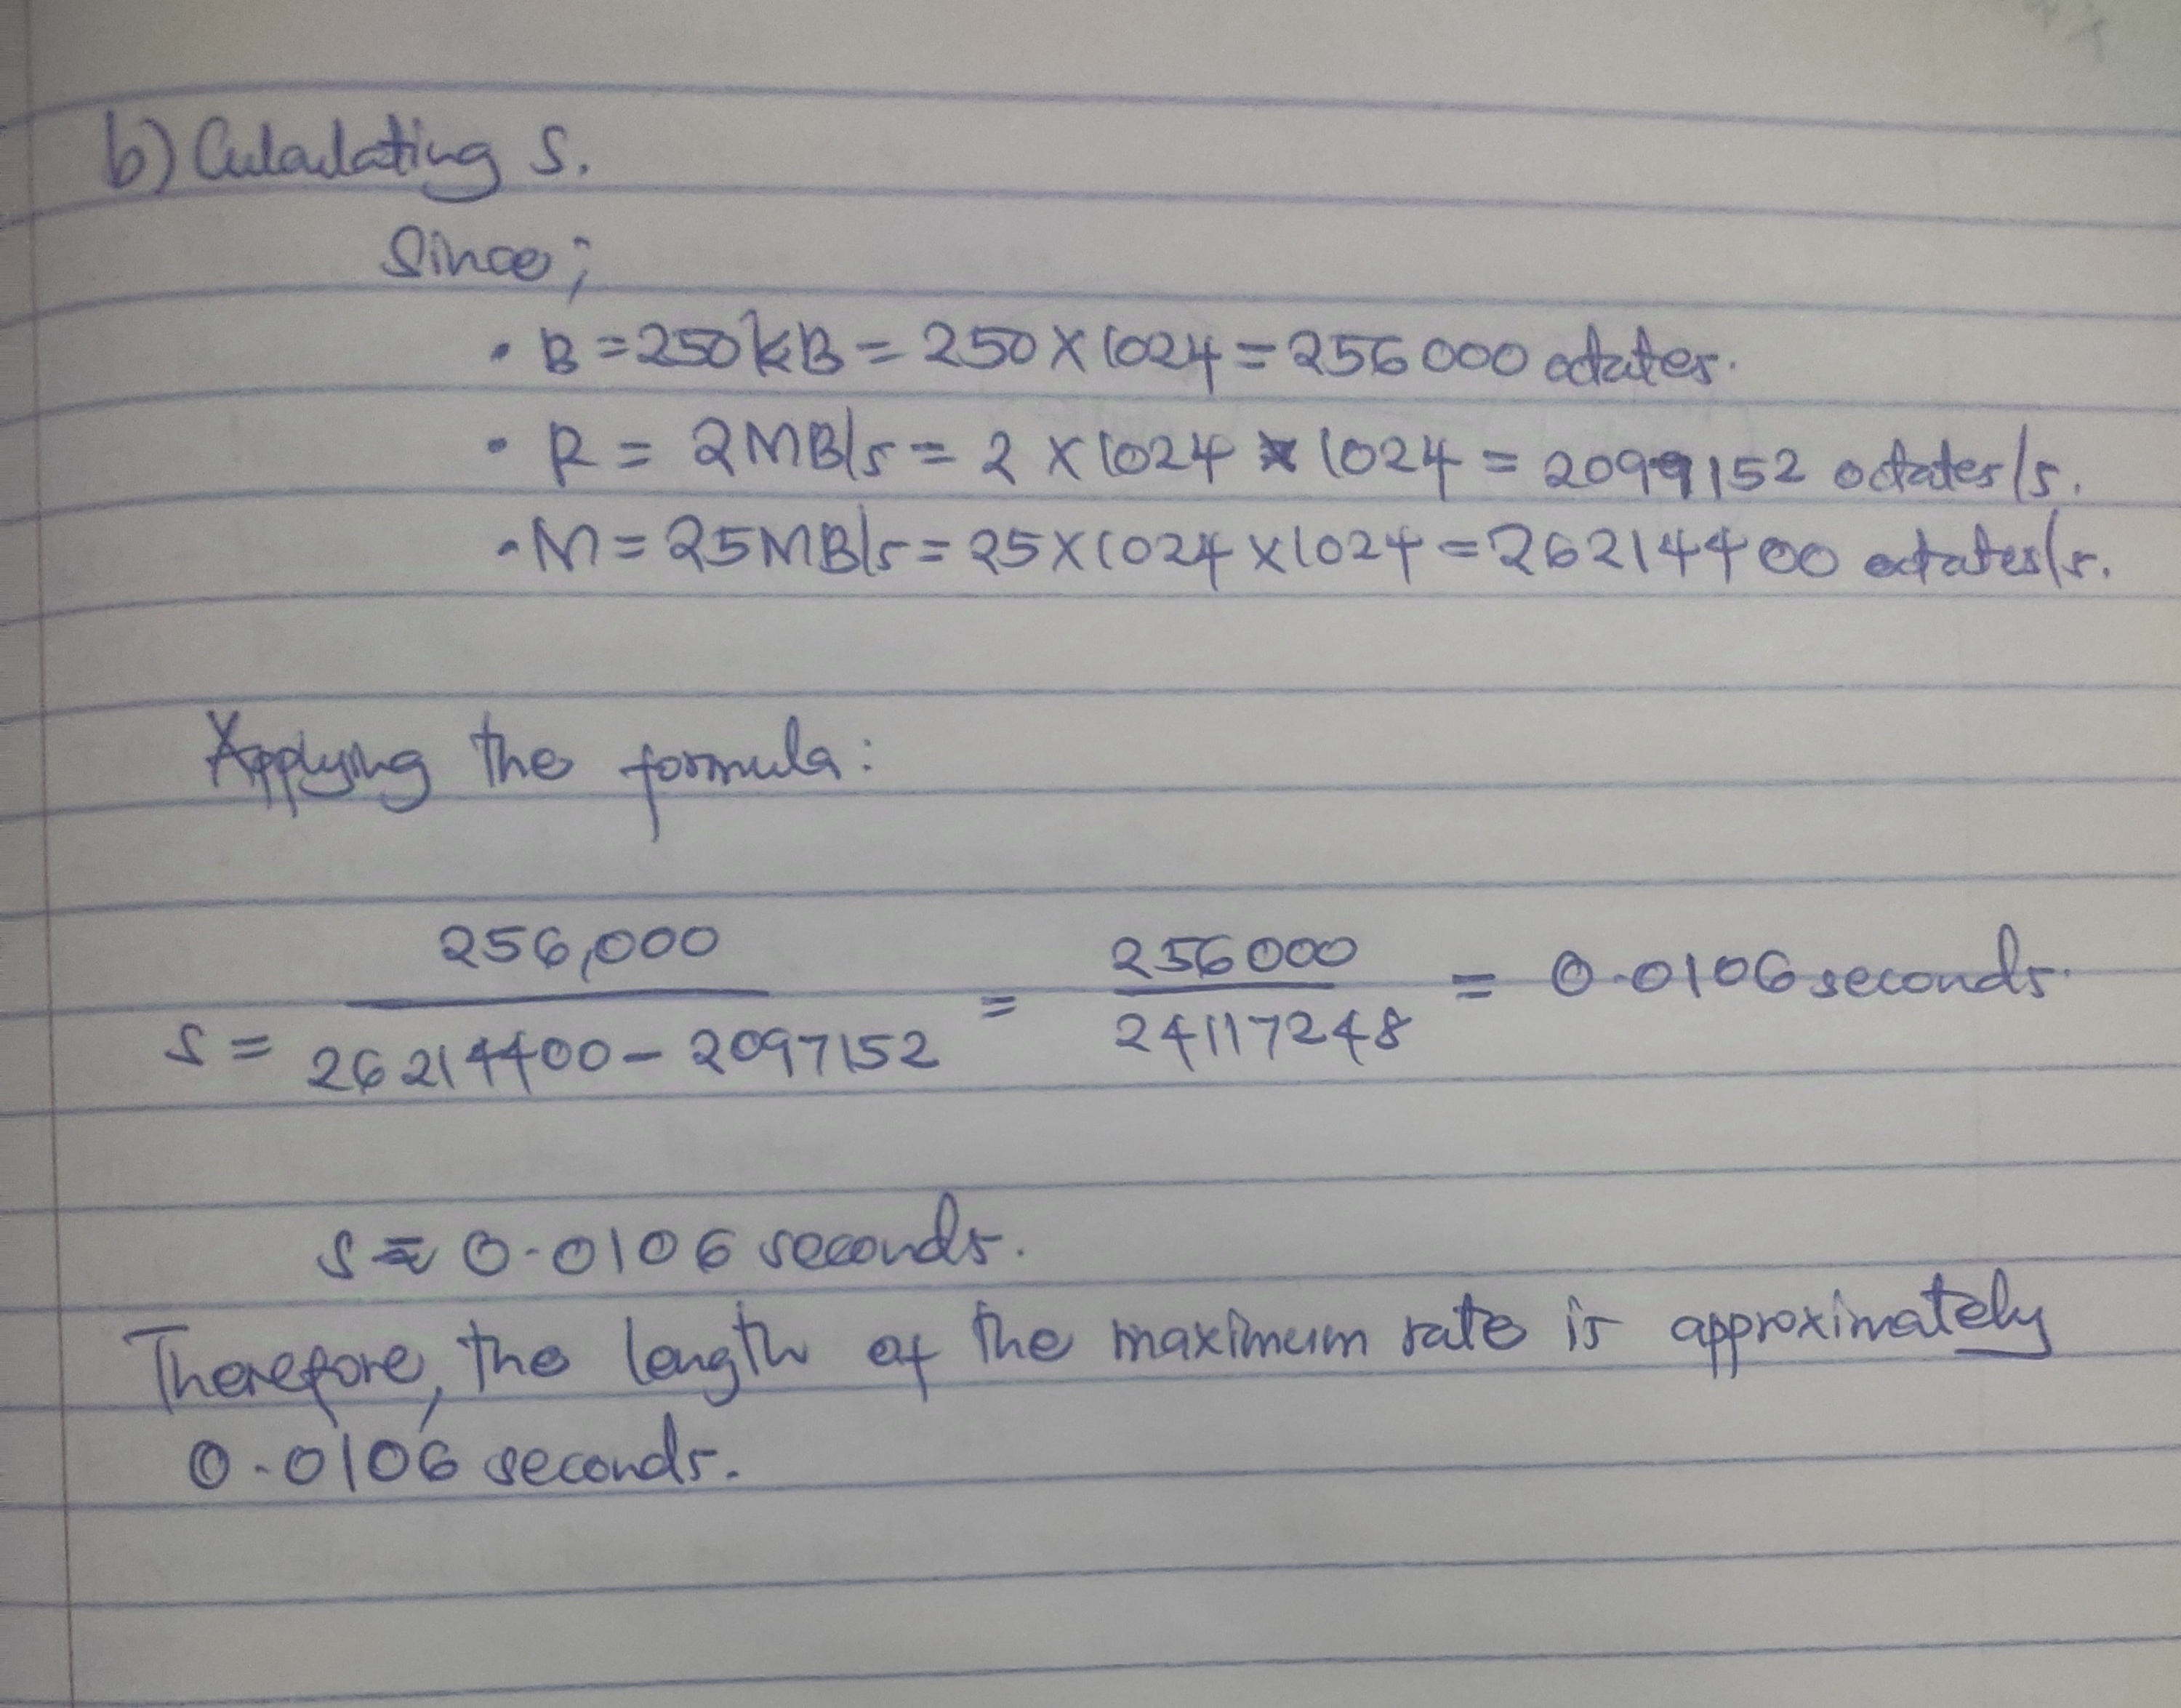 b) Culculating S.
Since;
• B = 250KB = 250 X 1024 = 256000 octates.
• R = 2MB/s = 2 X 1024 X 1024 = 2099152 octates/s.
• M = 25MB/s = 25 X 1024 X 1024 = 26214400 octates/s.
Applying the formula:
S = 256,000 / 26214400 - 2097152 = 256000 / 24117248 = 0.0106 seconds.
S ≈ 0.0106 seconds.
Therefore, the length of the maximum rate is approximately
0.0106 seconds.